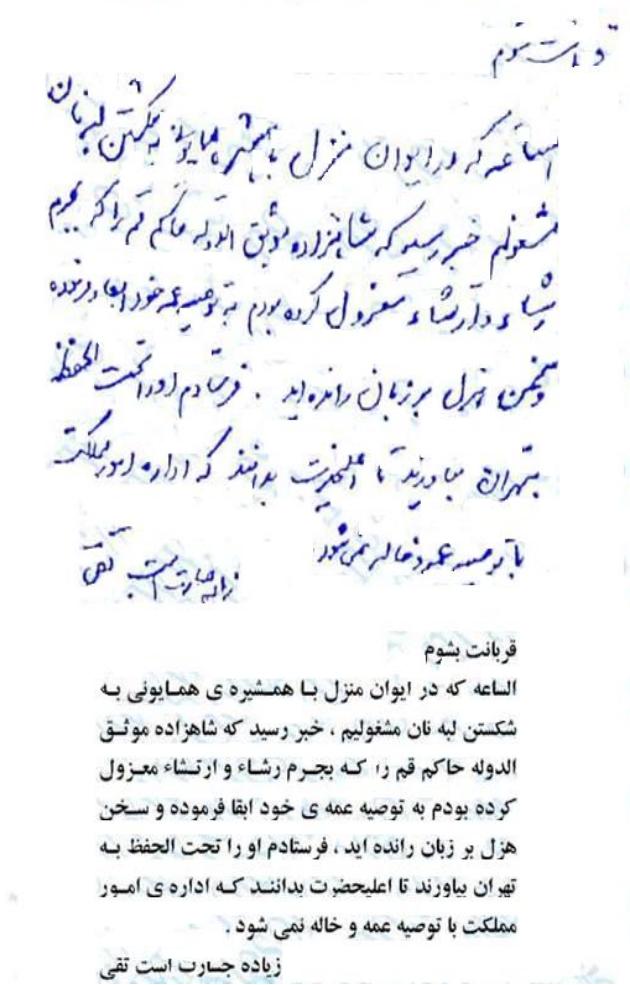 قربانت شوم
الساعه که در ایوان منزل با همشیره همایونی به شکستن لبه نان
مشغولم خبر رسید که شاهزاده موثق الدوله حاکم قم را که بجرم
رشاء و ارتشاء معزول کرده بودم به توصیه عمه خود ابقا فرموده
و سخن هزل بر زبان رانده اید . فرستادم او را تحت الحفظ
بتهران بیاورند تا اعلیحضرت بدانند که اداره امور مملکت
با توصیه عمه و خاله نمی شود
زیاده جسارت است تقی
قربانت بشوم
الساعه که در ایوان منزل با همشیره ی همایونی به
شکستن لبه نان مشغولیم ، خبر رسید که شاهزاده موثق
الدوله حاکم قم را که بجرم رشاء و ارتشاء معزول
کرده بودم به توصیه عمه ی خود ابقا فرموده و سخن
هزل بر زبان رانده اید ، فرستادم او را تحت الحفظ به
تهران بیاورند تا اعلیحضرت بدانند که اداره ی امور
مملکت با توصیه عمه و خاله نمی شود .
زیاده جسارت است تقی